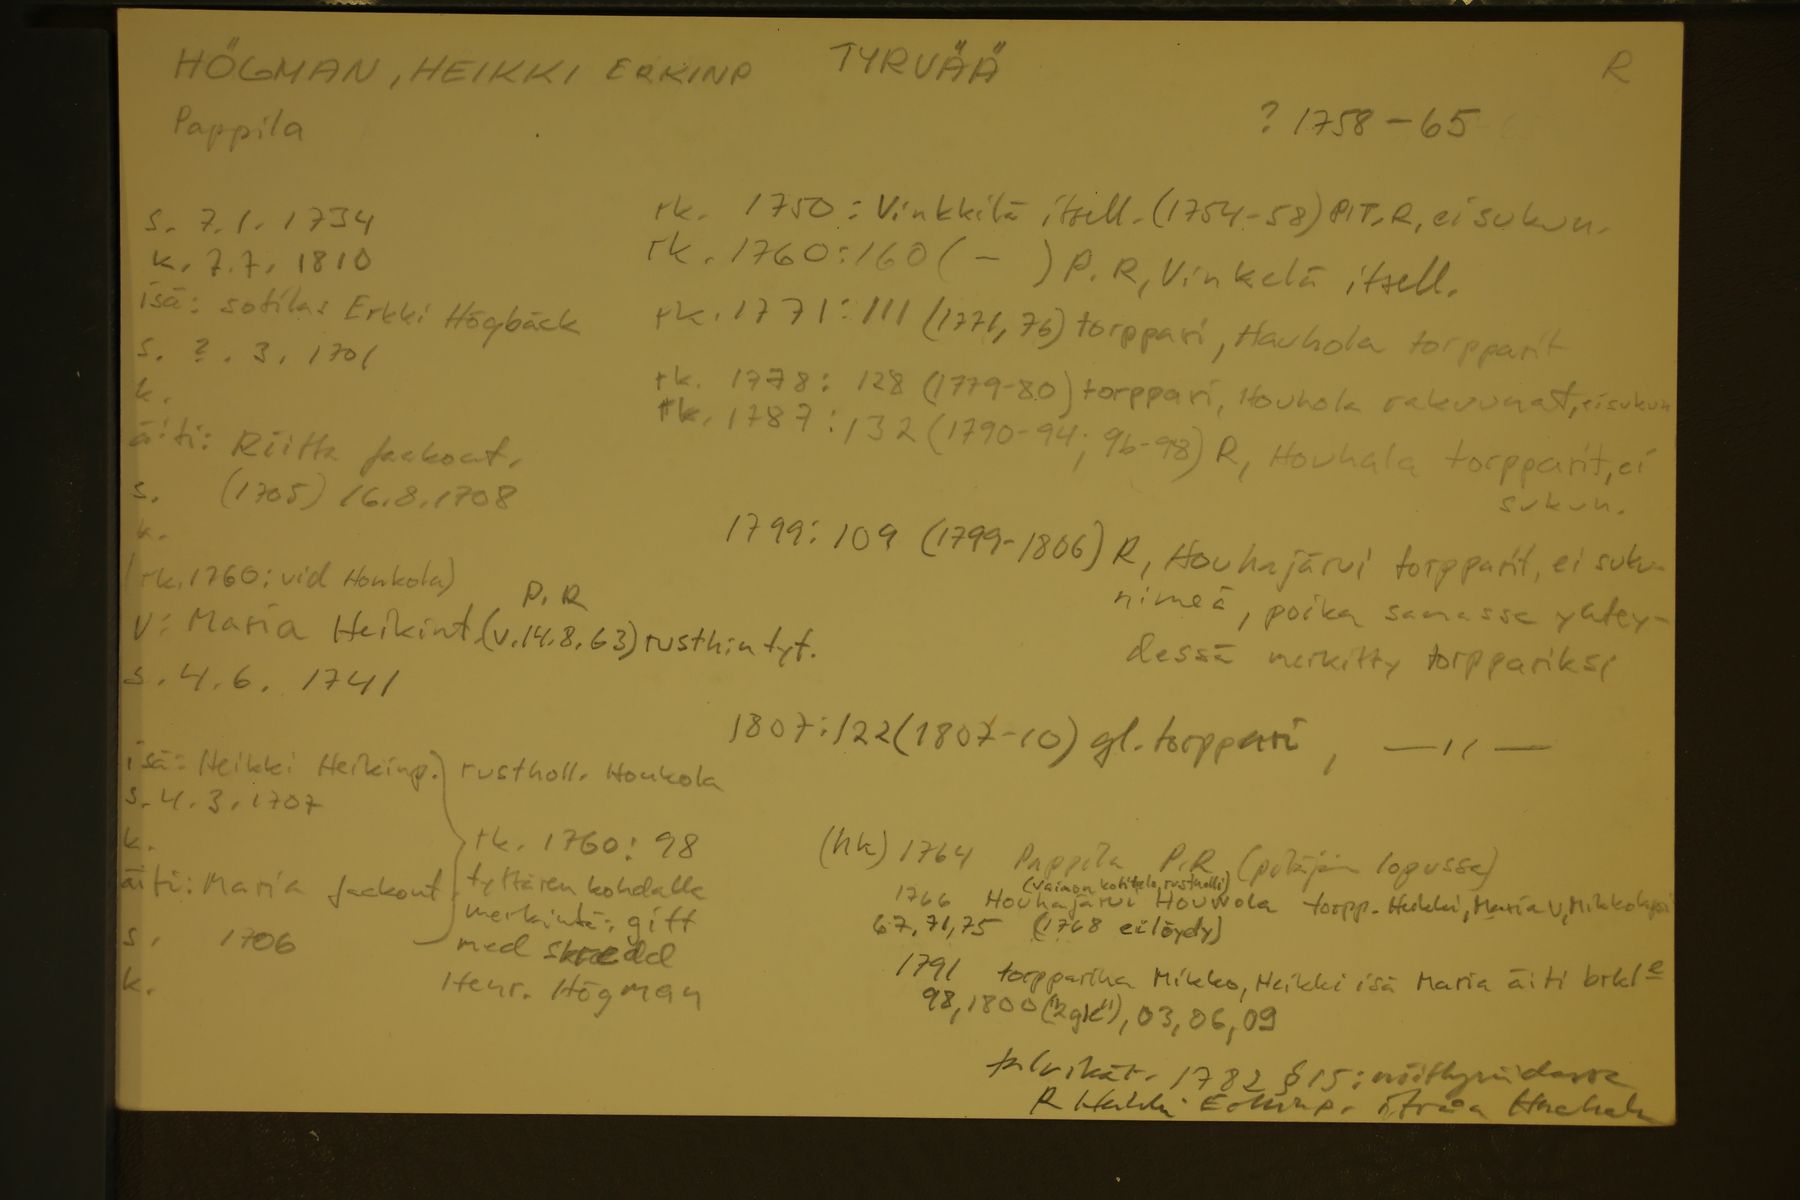 HÖGMAN, HEIKKI ERKINP TYRVÄÄ R
Pappila
? 1758-65
s. 7.1. 1734
k. 7.7. 1810
isä: sotilas Erkki Högbäck
s. ? . 3. 1701
k.
äiti: Riitta Jaakont.
s. (1705) 16.8.1708
k.
(rk. 1760: vid Honkola)
P. R
v: Maria Heikint. (v. 14.8.63) rusthin tyt.
s. 4.6. 1741
isä: Heikki Heikinp. rustholl. Honkola
s. 4.3.1707
k. rk. 1760: 98
äiti: Maria Jaakont. tyttären kohdalla
merkintä: gift
s. 1706 med skredd
k. Henr. Högman
rk. 1750: Vinkkilä itsell. (1754-58) PIT. R, ei sukun.
rk. 1760:160 ( - ) P. R, Vinkelä itsell.
rk. 1771: 111 (1771, 76) torppari, Hauhola torpparit
rk. 1778: 128 (1779-80) torppari, Houhola rakuunat, ei sukun
rk. 1787: 132 (1790-94; 96-98) R, Houhala torpparit, ei
sukun.
1799: 109 (1799-1806) R, Houhajärvi torpparit, ei suku-
nimeä, poika samassa yhtey-
dessä merkitty torppariksi
1807: 122 (1807-10) gl. torppari, —"—
(hk) 1764 Pappila P.R (pitäjän lopussa)
(vaimon kotitalo, rustholli)
1766 Houhajärvi Houwola torpp. Heikki, Maria V, Mikko
67, 71, 75 (1768 ei löydy)
1791 torpparina Mikko, Heikki isä Maria äiti
98, 1800 ("2gk"), 03, 06, 09
1782 § 15:
R Heikki Erkinp.